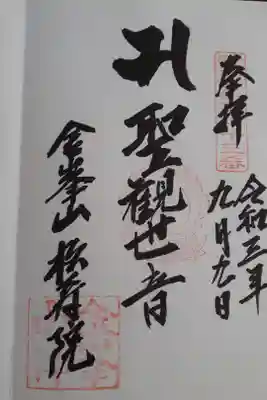 奉拝
令和三年
九月九日
聖観世音
峯山 寿院